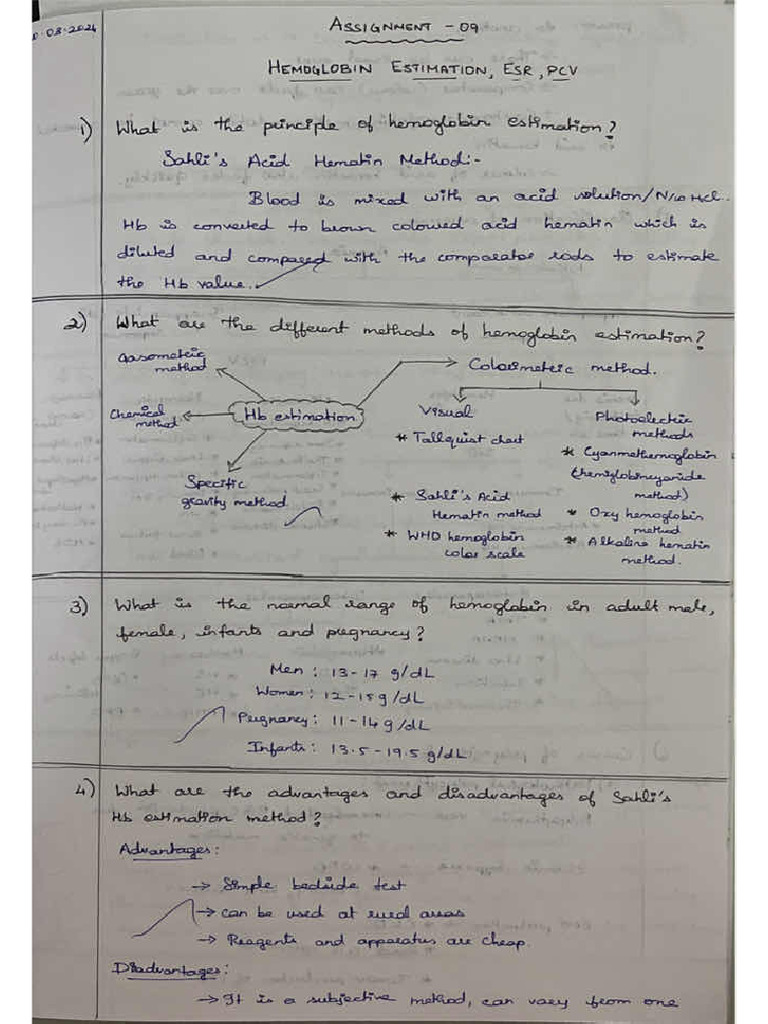 0.08.2024
ASSIGNMENT - 09
HEMOGLOBIN ESTIMATION, ESR, PCV
1) What is the principle of hemoglobin estimation?
Sahli's Acid Hematin Method:-
Blood is mixed with an acid solution/N/10 HCl.
Hb is converted to brown coloured acid hematin which is
diluted and compared with the comparator rods to estimate
the Hb value.
2) What are the different methods of hemoglobin estimation?
Gasometric
method
Chemical
method
Hb estimation
Specific
gravity method
Colorimetric method.
Visual
* Tallquist chart
* Sahli's Acid
Hematin method
* WHO hemoglobin
color scale
Photoelectric
methods
* Cyanmethemoglobin
(hemiglobincyanide
method)
* Oxy hemoglobin
method
* Alkaline hematin
method.
3) What is the normal range of hemoglobin in adult male,
female, infants and pregnancy?
Men : 13-17 g/dL
Women : 12-15 g/dL
Pregnancy : 11-14 g/dL
Infants : 13.5-19.5 g/dL
4) What are the advantages and disadvantages of Sahli's
Hb estimation method?
Advantages:
→ Simple bedside test
→ can be used at rural areas
→ Reagents and apparatus are cheap.
Disadvantages:
→ It is a subjective method, can vary from one